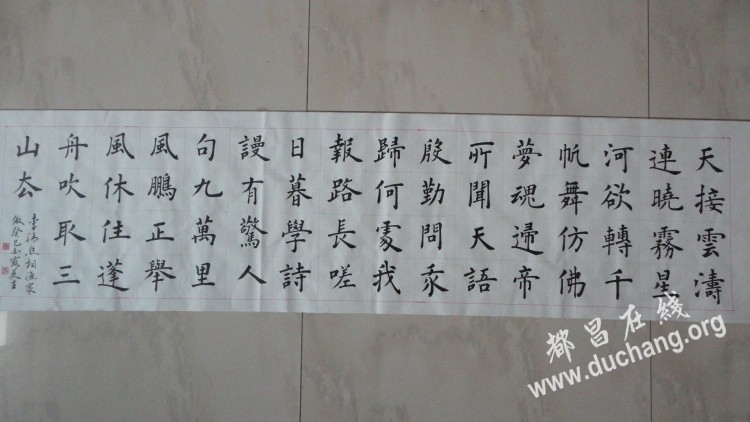 天接雲濤
連曉霧星
河欲轉千
帆舞仿佛
夢魂歸帝
所聞天語
殷勤問我
歸何處我
報路長嗟
日暮學詩
謾有驚人
句九萬里
風鵬正舉
風休住蓬
舟吹取三
山去
李清照詞漁家
傲癸巳
都昌在线
www.duchang.org